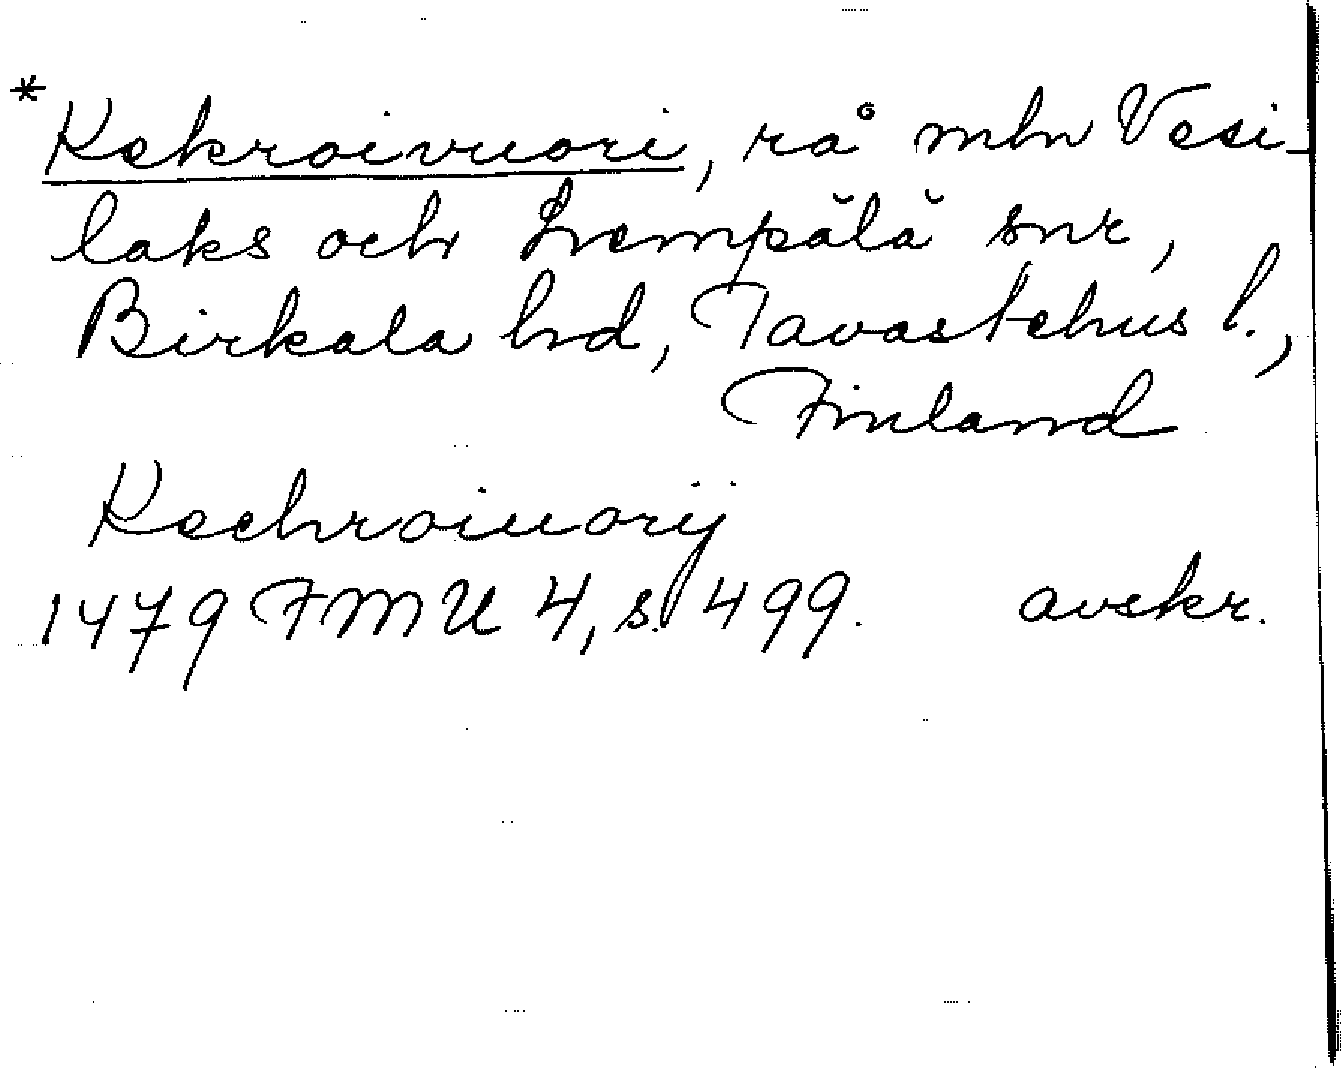 *Kekroivuori, rå mln Vesi-
laks och Lempälä snr,
Birkala hd, Tavastehus l.,
Finland
Kechroiuorij
1479 FMU 4, s. 499. avskr.